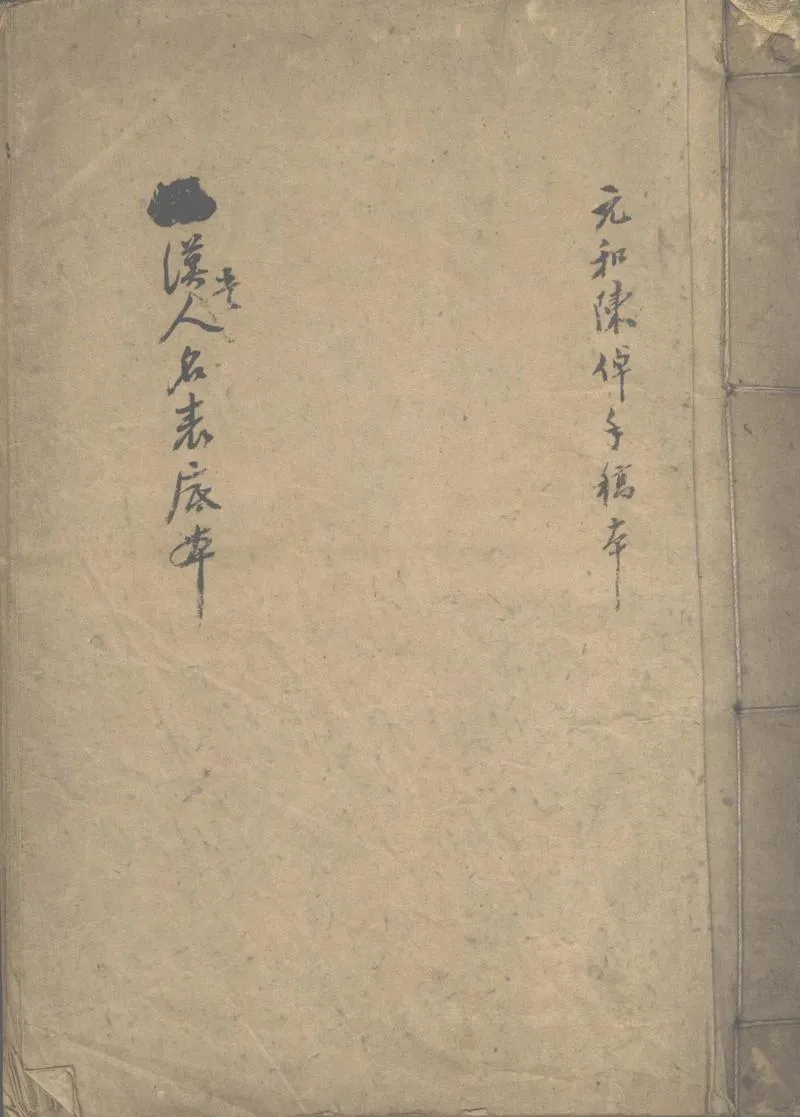 元和陳倬手稿本
漢書人名表底草